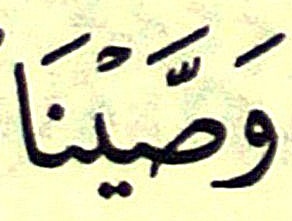 وَصَّيْنَا